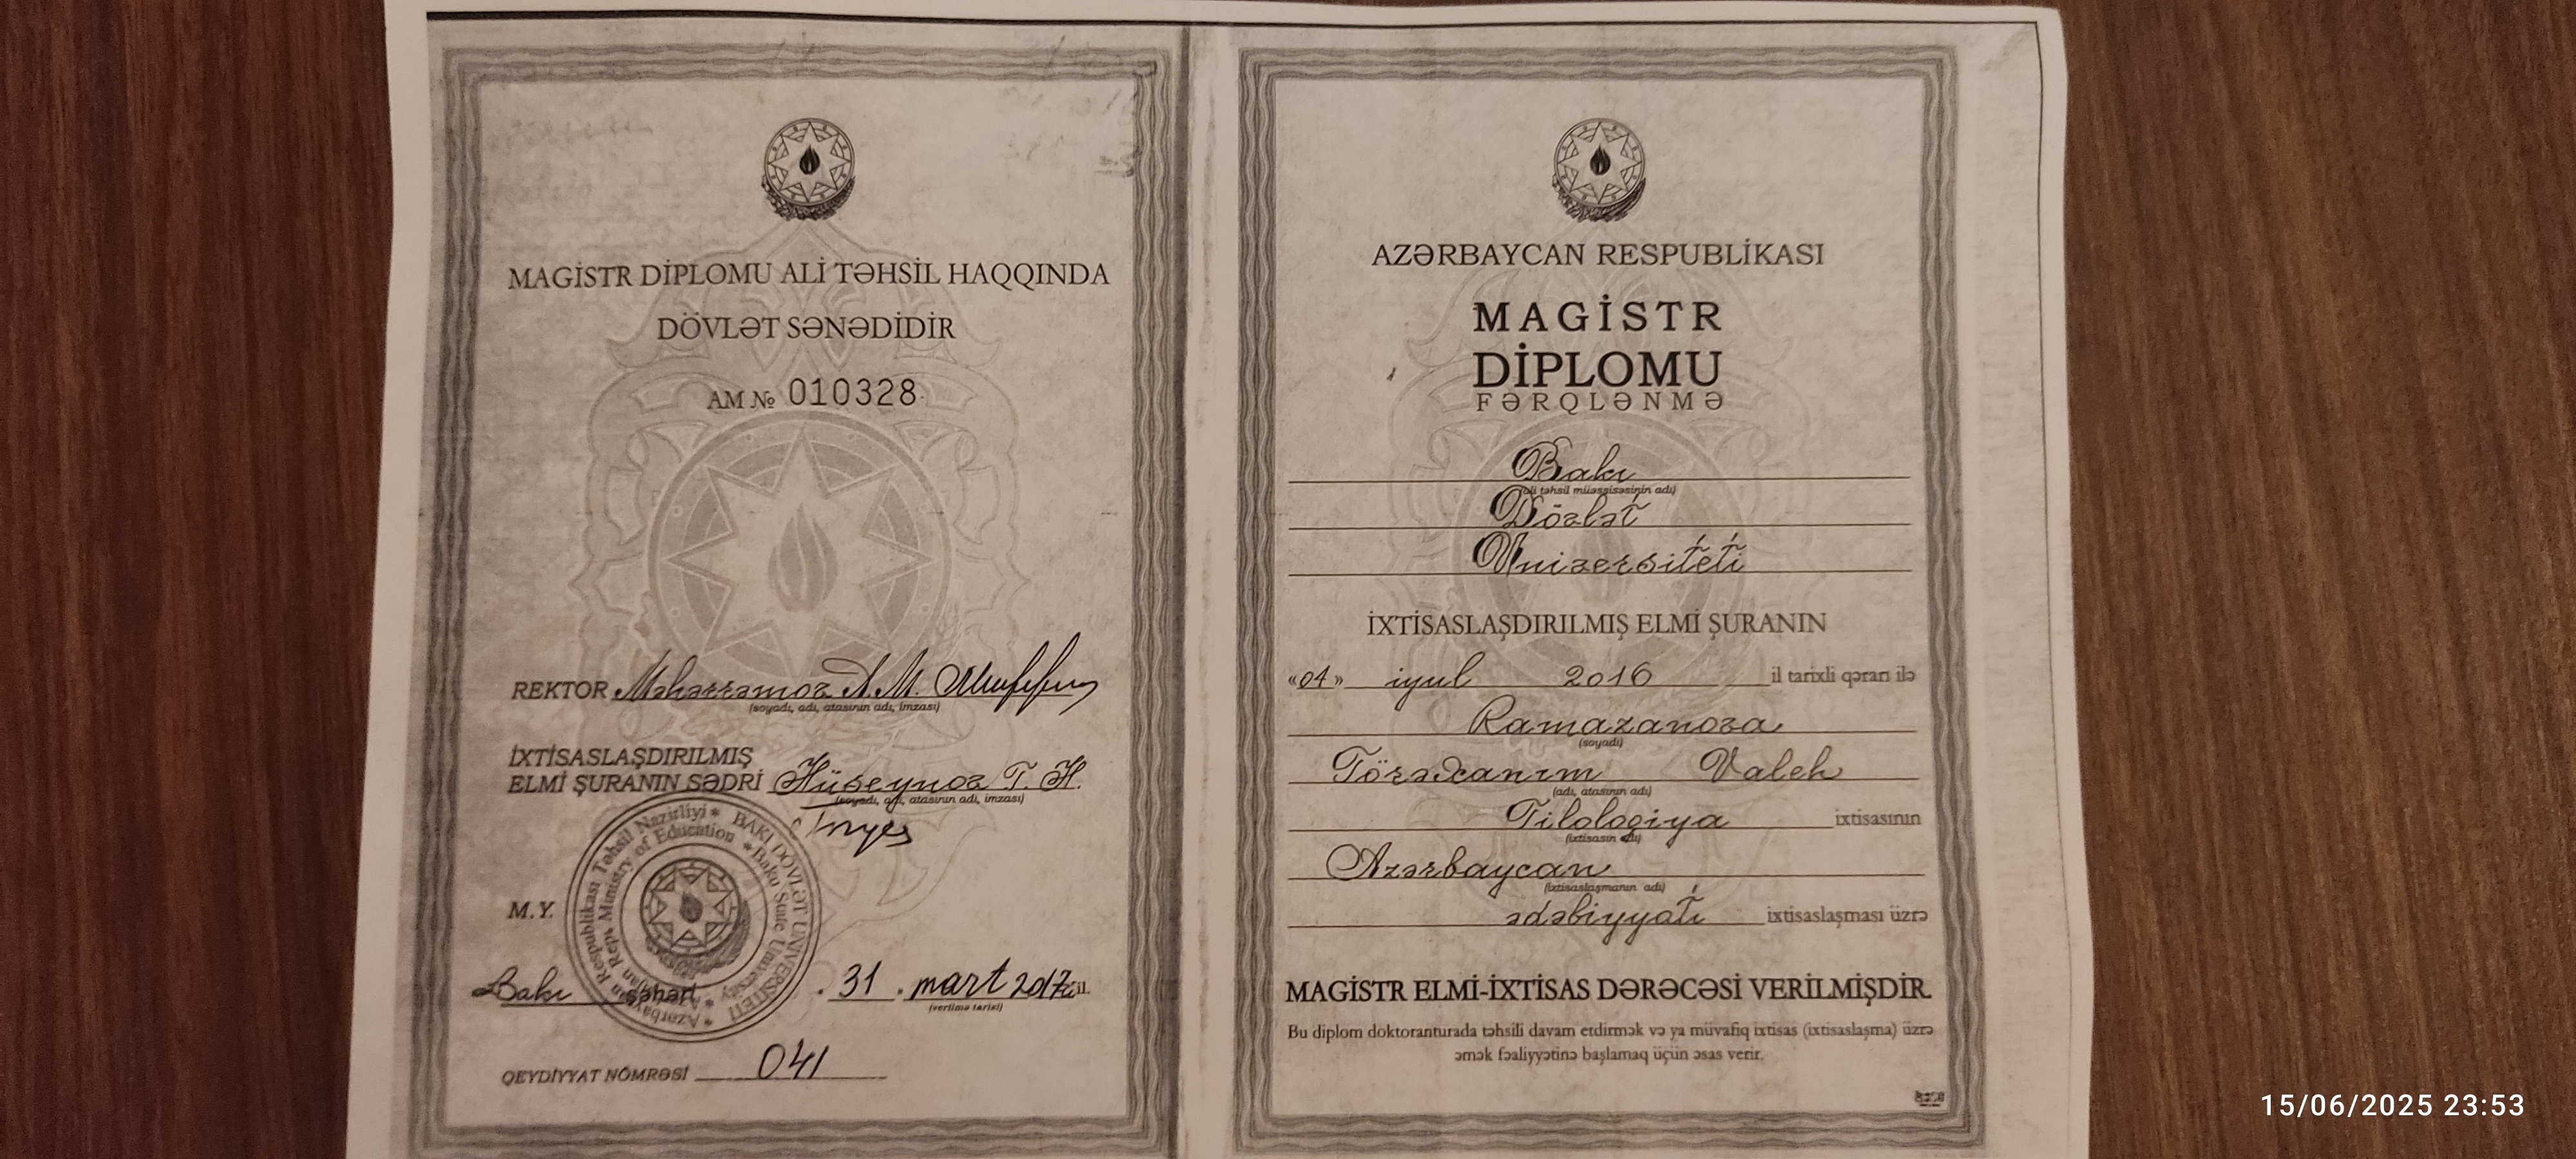 MAGİSTR DİPLOMU ALİ TƏHSİL HAQQINDA
DÖVLƏT SƏNƏDİDİR
AM № 010328
REKTOR Məhərrəmov A.M.
(soyadı, adı, atasının adı, imzası)
İXTİSASLAŞDIRILMIŞ
ELMİ ŞURANIN SƏDRİ Hüseynov T. H.
(soyadı, adı, atasının adı, imzası)
M.Y.
Azərbaycan Respublikası Təhsil Nazirliyi * BAKI DÖVLƏT UNİVERSİTETİ *
Azerbaijan Rep. Ministry of Education * Baku State University *
Bakı şəhəri 31 mart 2017 il
(verilmə tarixi)
QEYDİYYAT NÖMRƏSİ 041
AZƏRBAYCAN RESPUBLİKASI
MAGİSTR
DİPLOMU
FƏRQLƏNMƏ
Bakı
(ali təhsil müəssisəsinin adı)
Dövlət
Universiteti
İXTİSASLAŞDIRILMIŞ ELMİ ŞURANIN
«04» iyul 2016 il tarixli qərarı ilə
Ramazanova
(soyadı)
Törəxanım Valeh
(adı, atasının adı)
Filologiya ixtisasının
(ixtisasın adı)
Azərbaycan
(ixtisaslaşmanın adı)
ədəbiyyatı ixtisaslaşması üzrə
MAGİSTR ELMİ-İXTİSAS DƏRƏCƏSİ VERİLMİŞDİR.
Bu diplom doktoranturada təhsili davam etdirmək və ya müvafiq ixtisas (ixtisaslaşma) üzrə
əmək fəaliyyətinə başlamaq üçün əsas verir.
15/06/2025 23:53